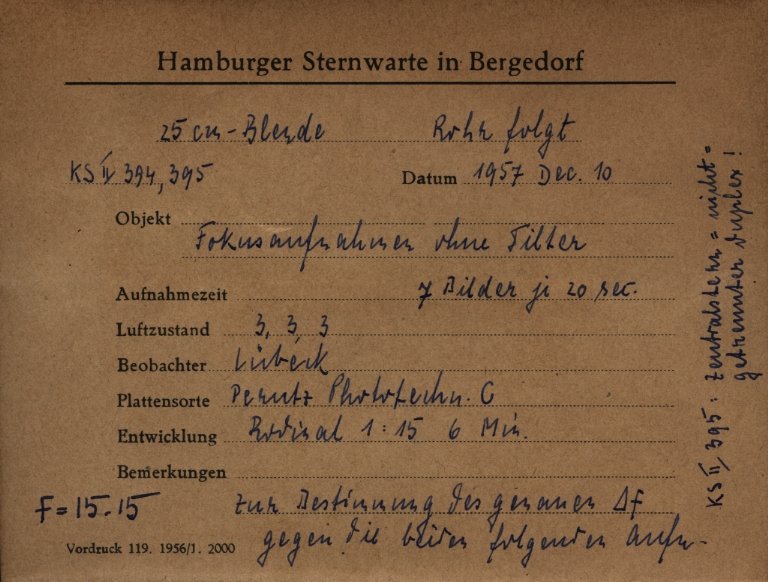 Hamburger Sternwarte in Bergedorf
25 cm-Blende Rohr folgt
KS II 394, 395 Datum 1957 Dec. 10
Objekt
Fokusaufnahmen ohne Filter
Aufnahmezeit 7 Bilder je 20 sec.
Luftzustand 3, 3, 3
Beobachter Lübeck
Plattensorte Perutz Phototechn. C
Entwicklung Rodinal 1:15 6 Min.
Bemerkungen
F = 15.15 Zur Bestimmung des genauen Δf
gegen die beiden folgenden Aufn.
Vordruck 119. 1956/1. 2000
KS II, 395: Zentralstern = nicht=
getrennter Duplex!